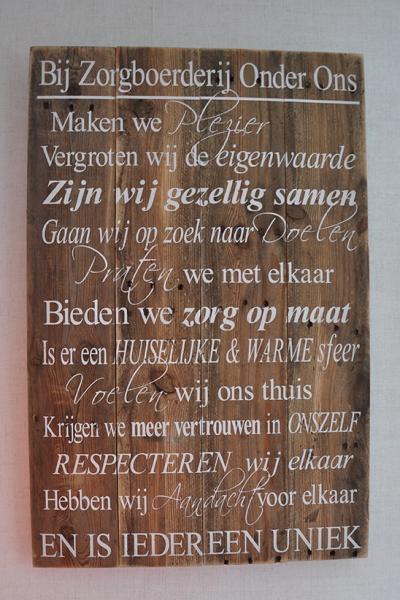 Bij Zorgboerderij Onder Ons
Maken we Plezier
Vergroten wij de eigenwaarde
Zijn wij gezellig samen
Gaan wij op zoek naar Doelen
Praten we met elkaar
Bieden we zorg op maat
Is er een HUISELIJKE & WARME sfeer
Voelen wij ons thuis
Krijgen we meer vertrouwen in ONSZELF
RESPECTEREN wij elkaar
Hebben wij Aandacht voor elkaar
EN IS IEDEREEN UNIEK